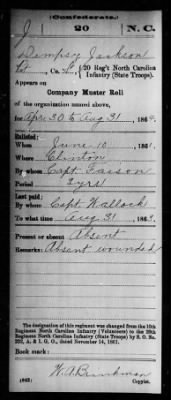 (Confederate.)
J 20 N.C.
Dempsy Jackson
Pvt, Co. , 20 Reg't North Carolina
Infantry (State Troops).
Appears on
Company Muster Roll
of the organization named above,
for Apr 30 to Aug 31, 1864.
Enlisted:
When June 10, 1861.
Where Clinton
By whom Capt. Faison
Period 3 yrs
Last paid:
By whom Capt. Wallock
To what time Aug 31, 1863.
Present or absent Absent
Remarks: Absent wounded
The designation of this regiment was changed from the 10th
Regiment North Carolina Infantry (Volunteers) to the 20th
Regiment North Carolina Infantry (State Troops) by S. O. No.
222, A. & I. G. O., dated November 14, 1861.
Book mark:
W. A. Brinkman
(642) Copyist.